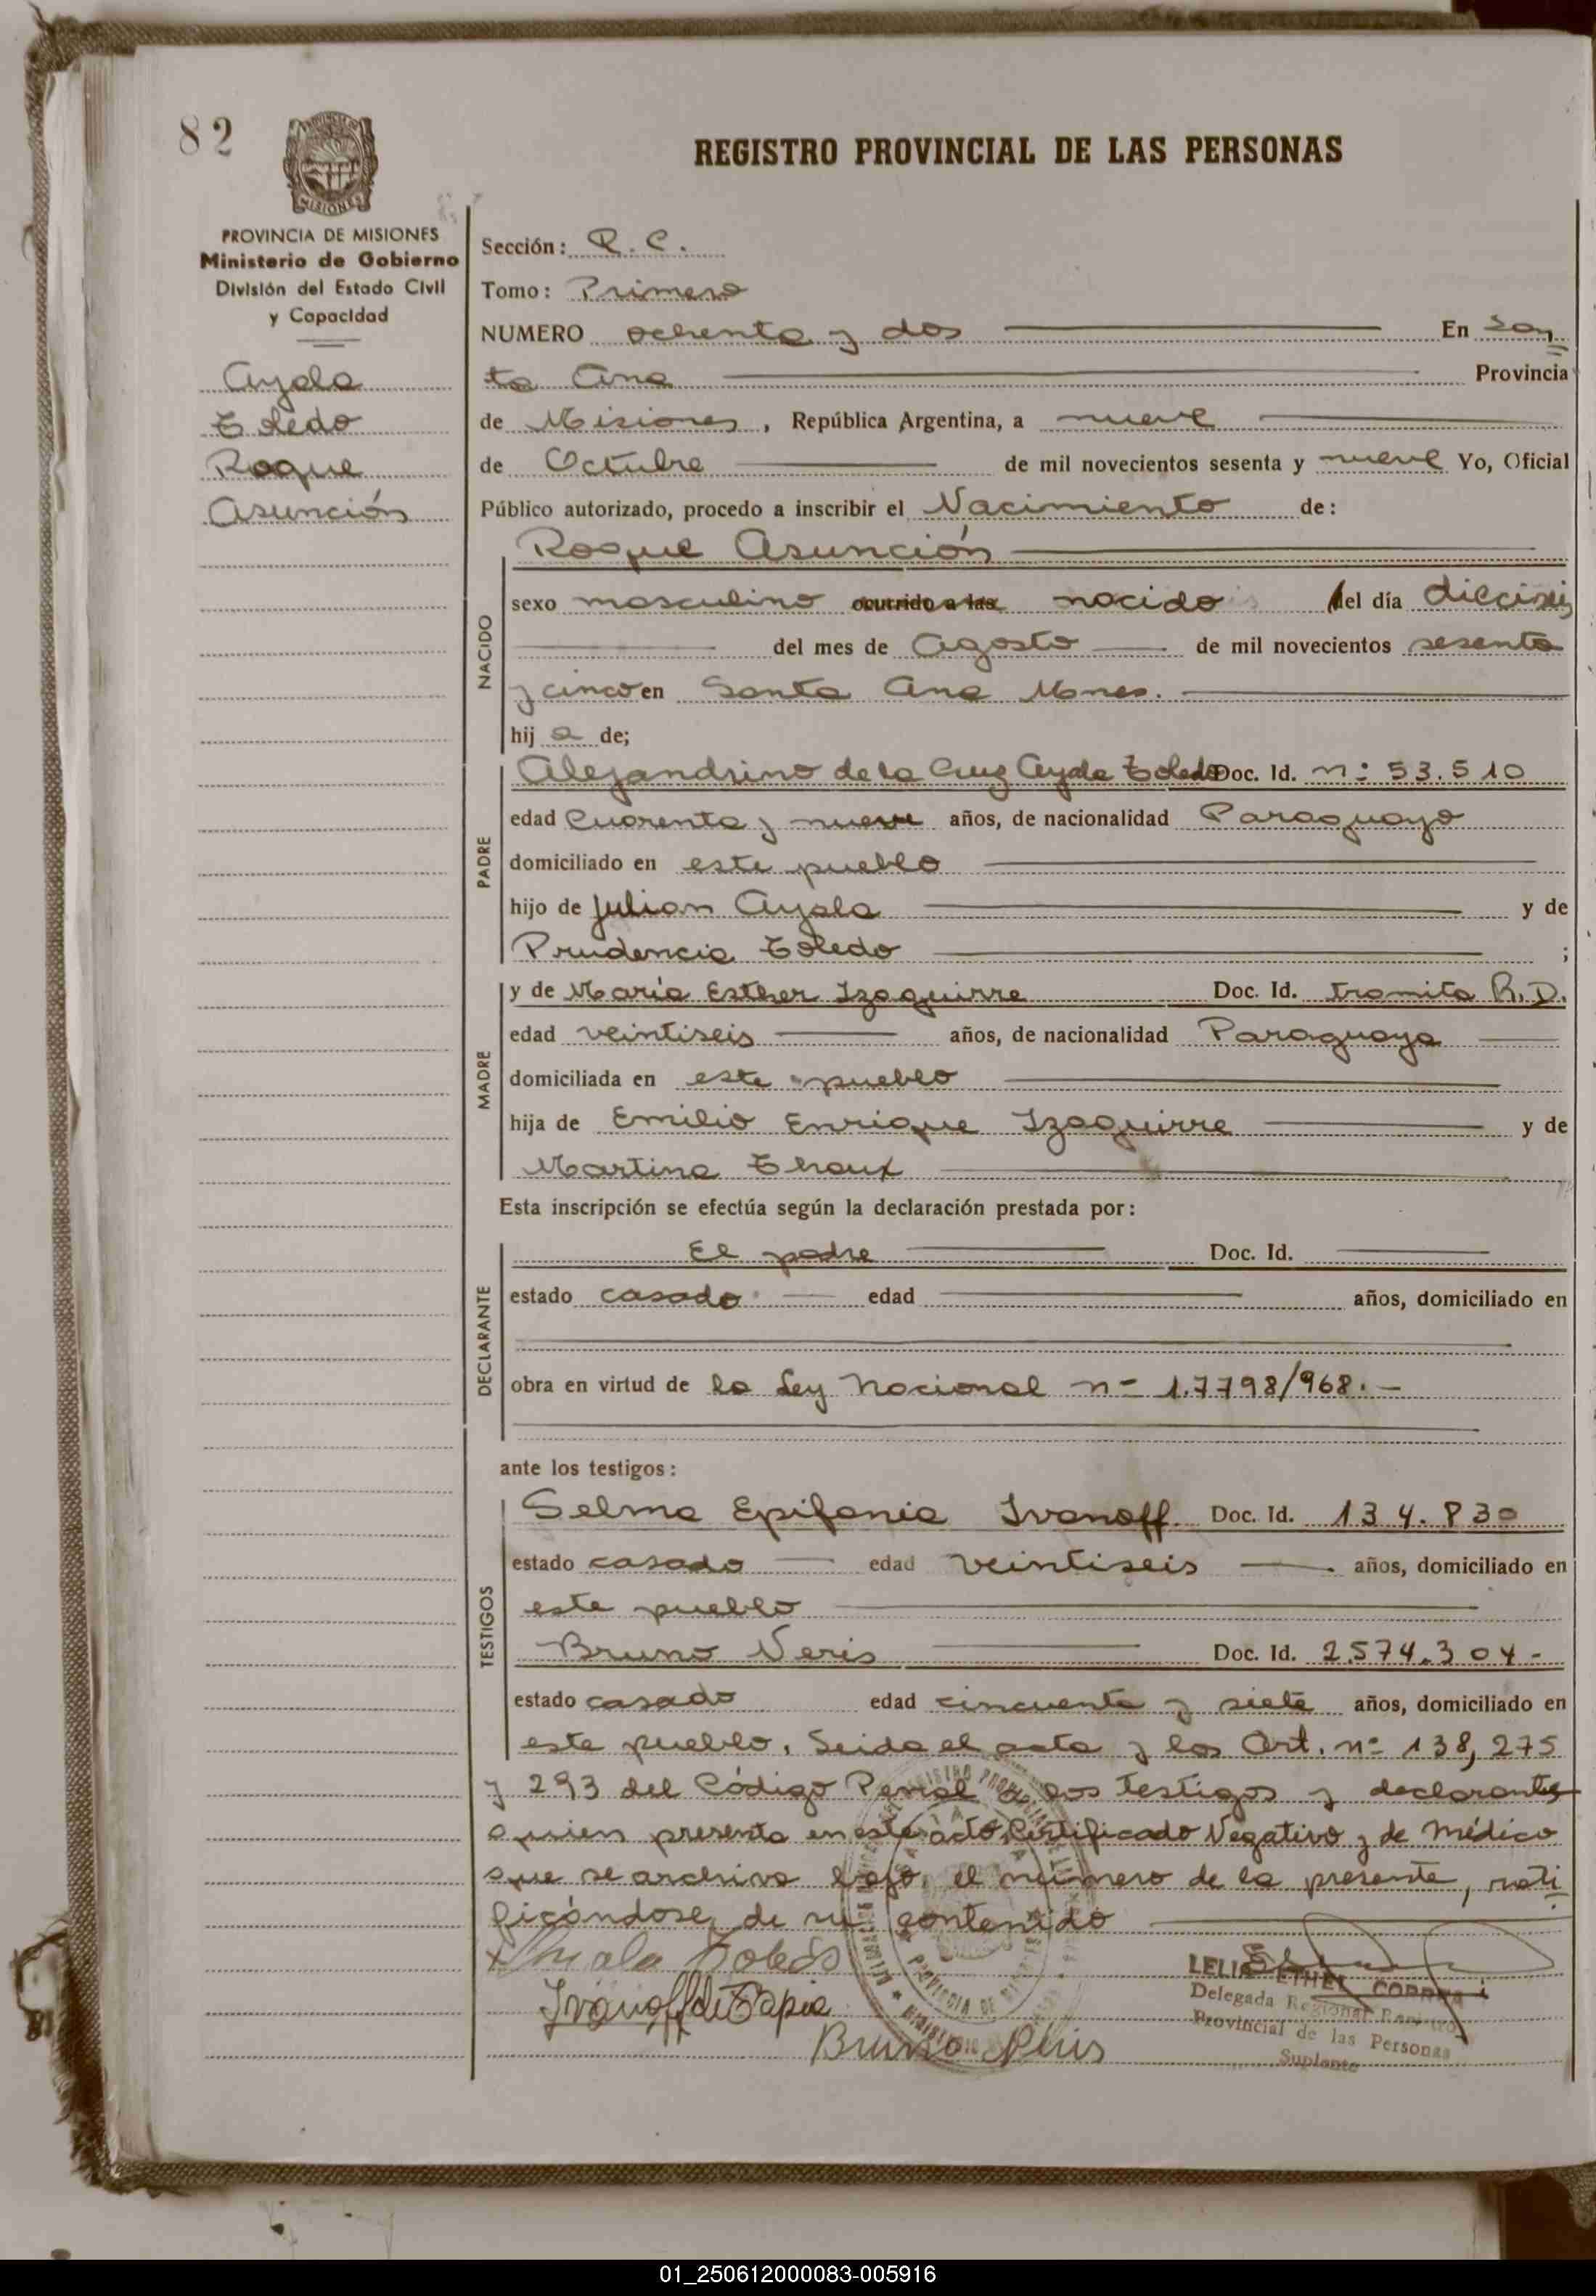 82
REGISTRO PROVINCIAL DE LAS PERSONAS
MISIONES
PROVINCIA DE MISIONES
Ministerio de Gobierno
División del Estado Civil
y Capacidad
Ayala
Toledo
Roque
Asunción
Sección: R. C.
Tomo: Primero
NUMERO ochenta y dos En San
ta Ana Provincia
de Misiones, República Argentina, a nueve
de Octubre de mil novecientos sesenta y nueve Yo, Oficial
Público autorizado, procedo a inscribir el Nacimiento de:
NACIDO
Roque Asunción
sexo masculino ocurrido a las nacido del día dieciseis
del mes de Agosto de mil novecientos sesenta
y cinco en Santa Ana Mnes.
hij a de;
PADRE
Alejandrino de la Cruz Ayala Toledo Doc. Id. nº 53.510
edad Cuarenta y nueve años, de nacionalidad Paraguayo
domiciliado en este pueblo
hijo de Julian Ayala y de
Prudencia Toledo ;
MADRE
y de María Esther Izaguirre Doc. Id. tramita R.D.
edad veintiseis años, de nacionalidad Paraguaya
domiciliada en este pueblo
hija de Emilio Enrique Izaguirre y de
Martina
Esta inscripción se efectúa según la declaración prestada por:
DECLARANTE
El padre Doc. Id.
estado casado edad años, domiciliado en
obra en virtud de la Ley Nacional nº 1.7798/968.-
ante los testigos:
TESTIGOS
Selma Epifania Ivanoff Doc. Id. 134.830
estado casado edad veintiseis años, domiciliado en
este pueblo
Bruno Neris Doc. Id. 2.574.304-
estado casado edad cincuenta y siete años, domiciliado en
este pueblo. Leida el acta y los Art. nº 138, 275
y 293 del Código Penal a los testigos y declarante
quien presenta en este acto Certificado Negativo y de Médico
que se archiva bajo el número de la presente, rati
ficándose de su contenido
Ayala Toledo
Ivanoff de Tapia
Bruno Neris
LELIA ETHEL CORREA
Delegada Regional Registro
Provincial de las Personas
Suplente
01_250612000083-005916